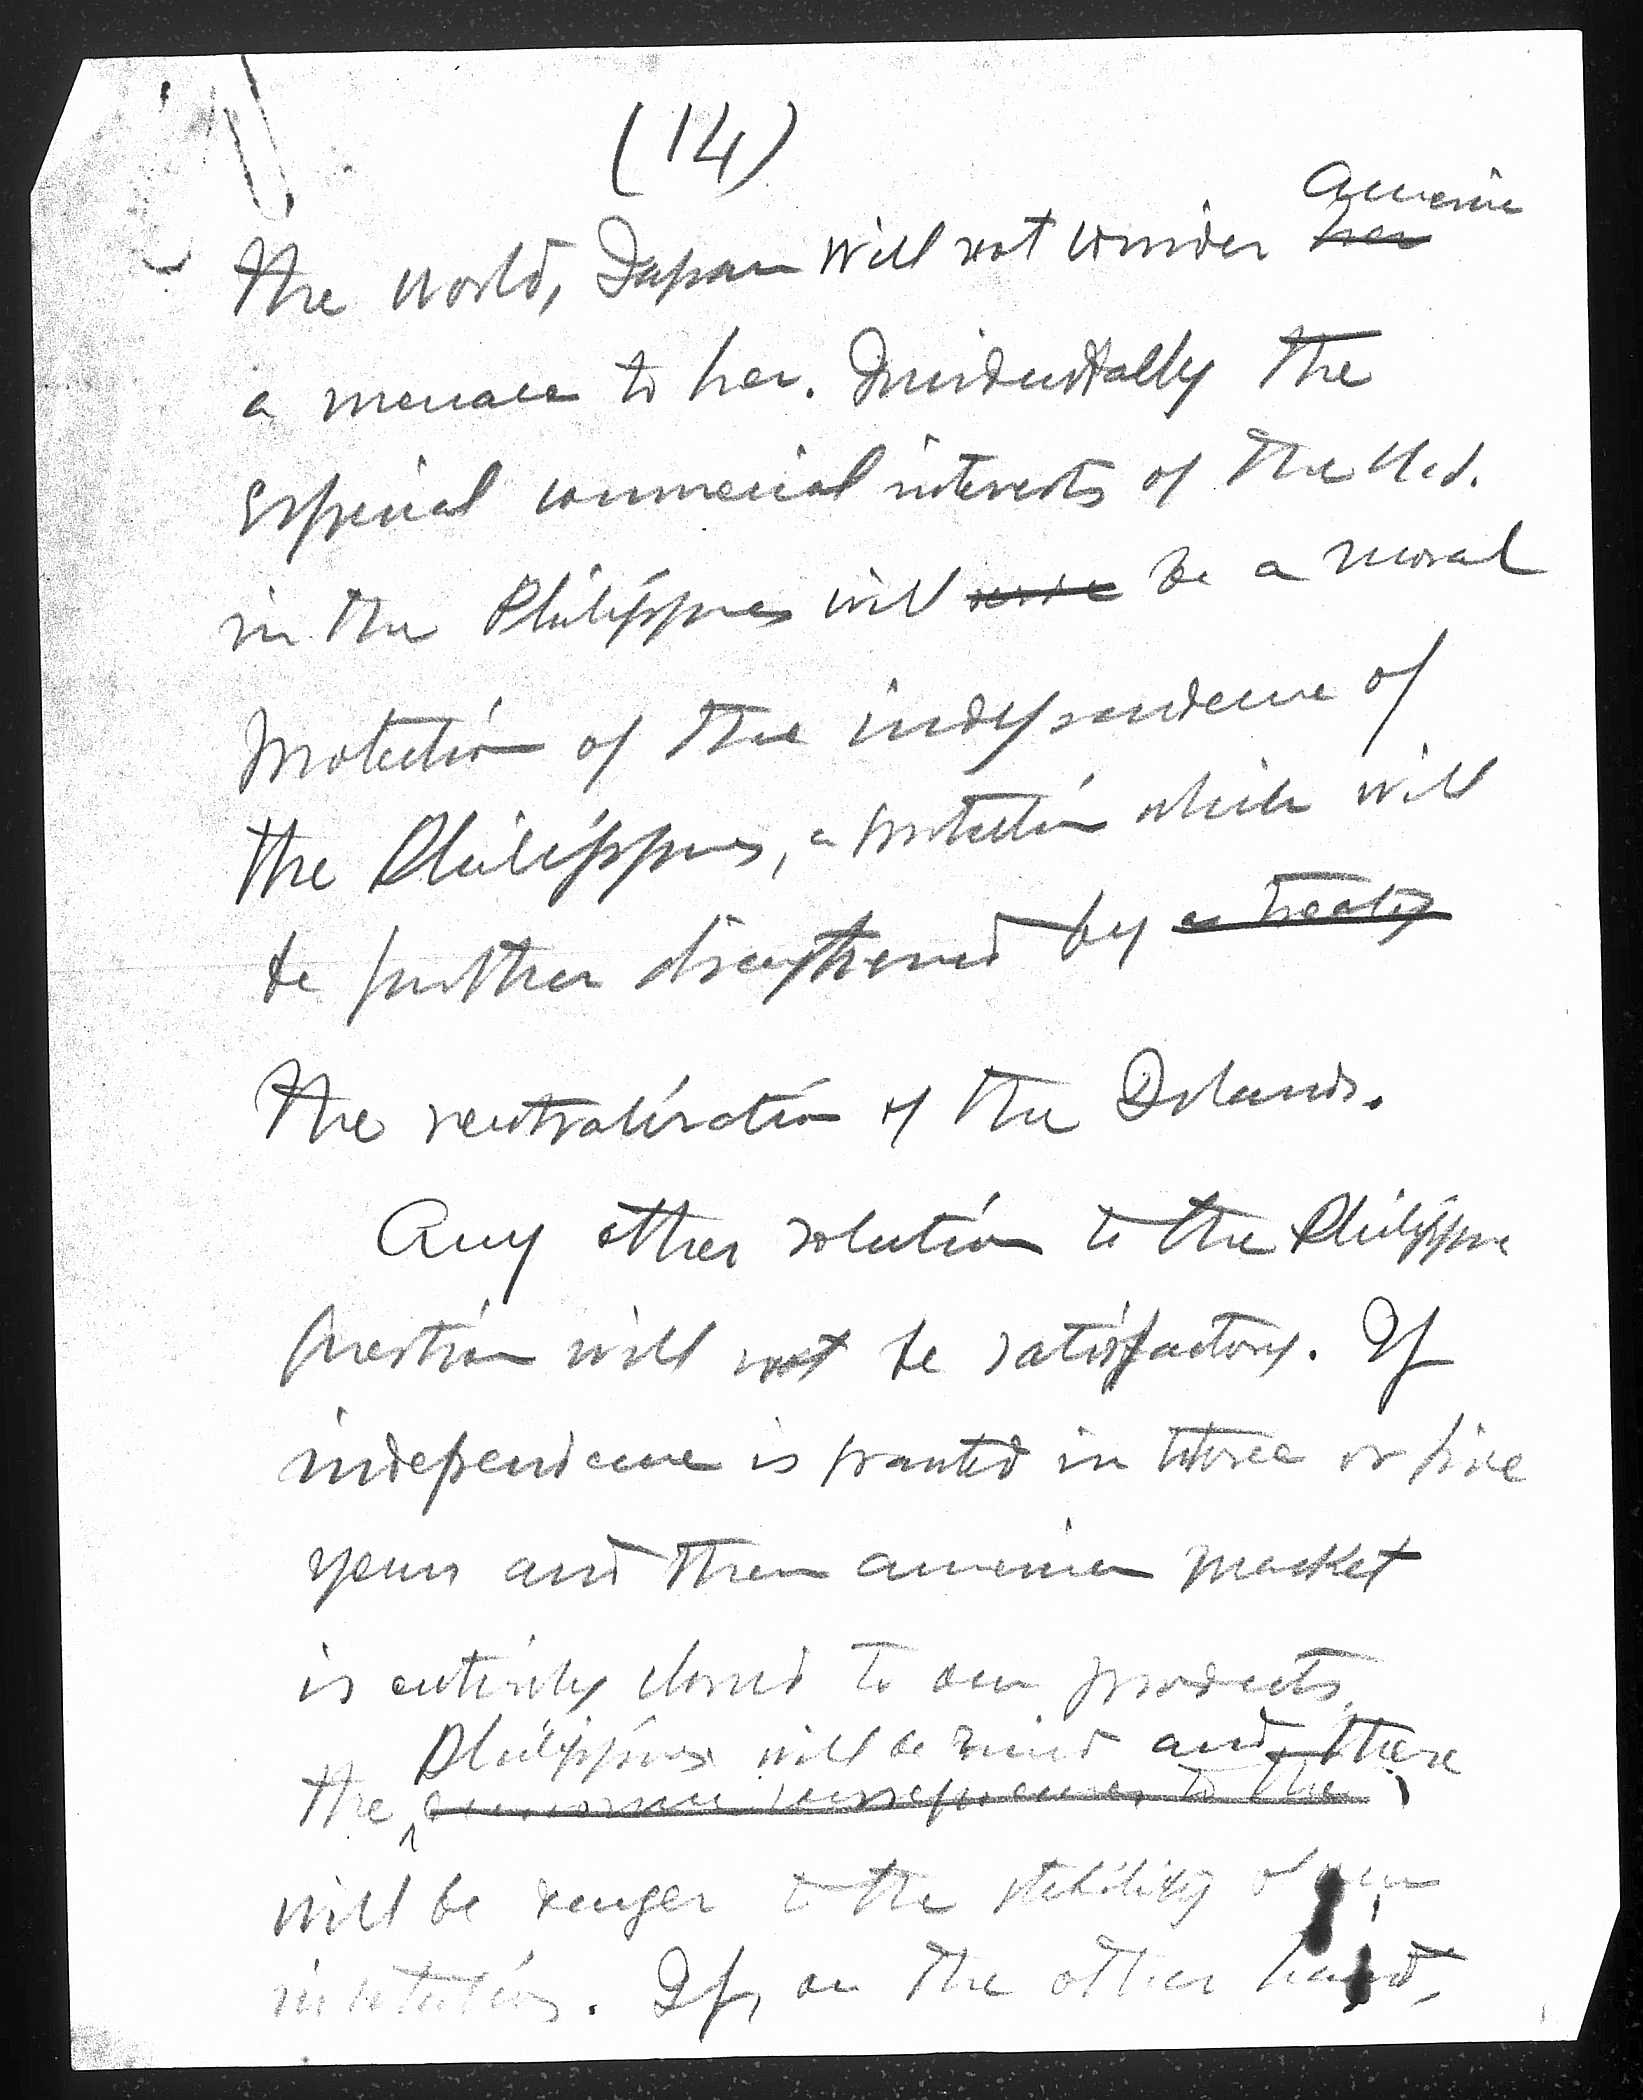 (14)
America
the world, Japan will not consider ~~her~~
a menace to her. Incidentally the
especial commercial interests of the U.S.
in the Philippines will ~~serve~~ be a moral
protection of the independence of
the Philippines, a protection which will
be further strengthened by ~~a treaty~~
the neutralization of the Islands.
Any other solution to the Philippine
question will not be satisfactory. If
independence is granted in three or five
years and then american market
is entirely closed to our products,
Philippines will be ruined and there
the ~~economic consequences to the~~
will be danger to the stability of our
institutions. If, on the other hand,